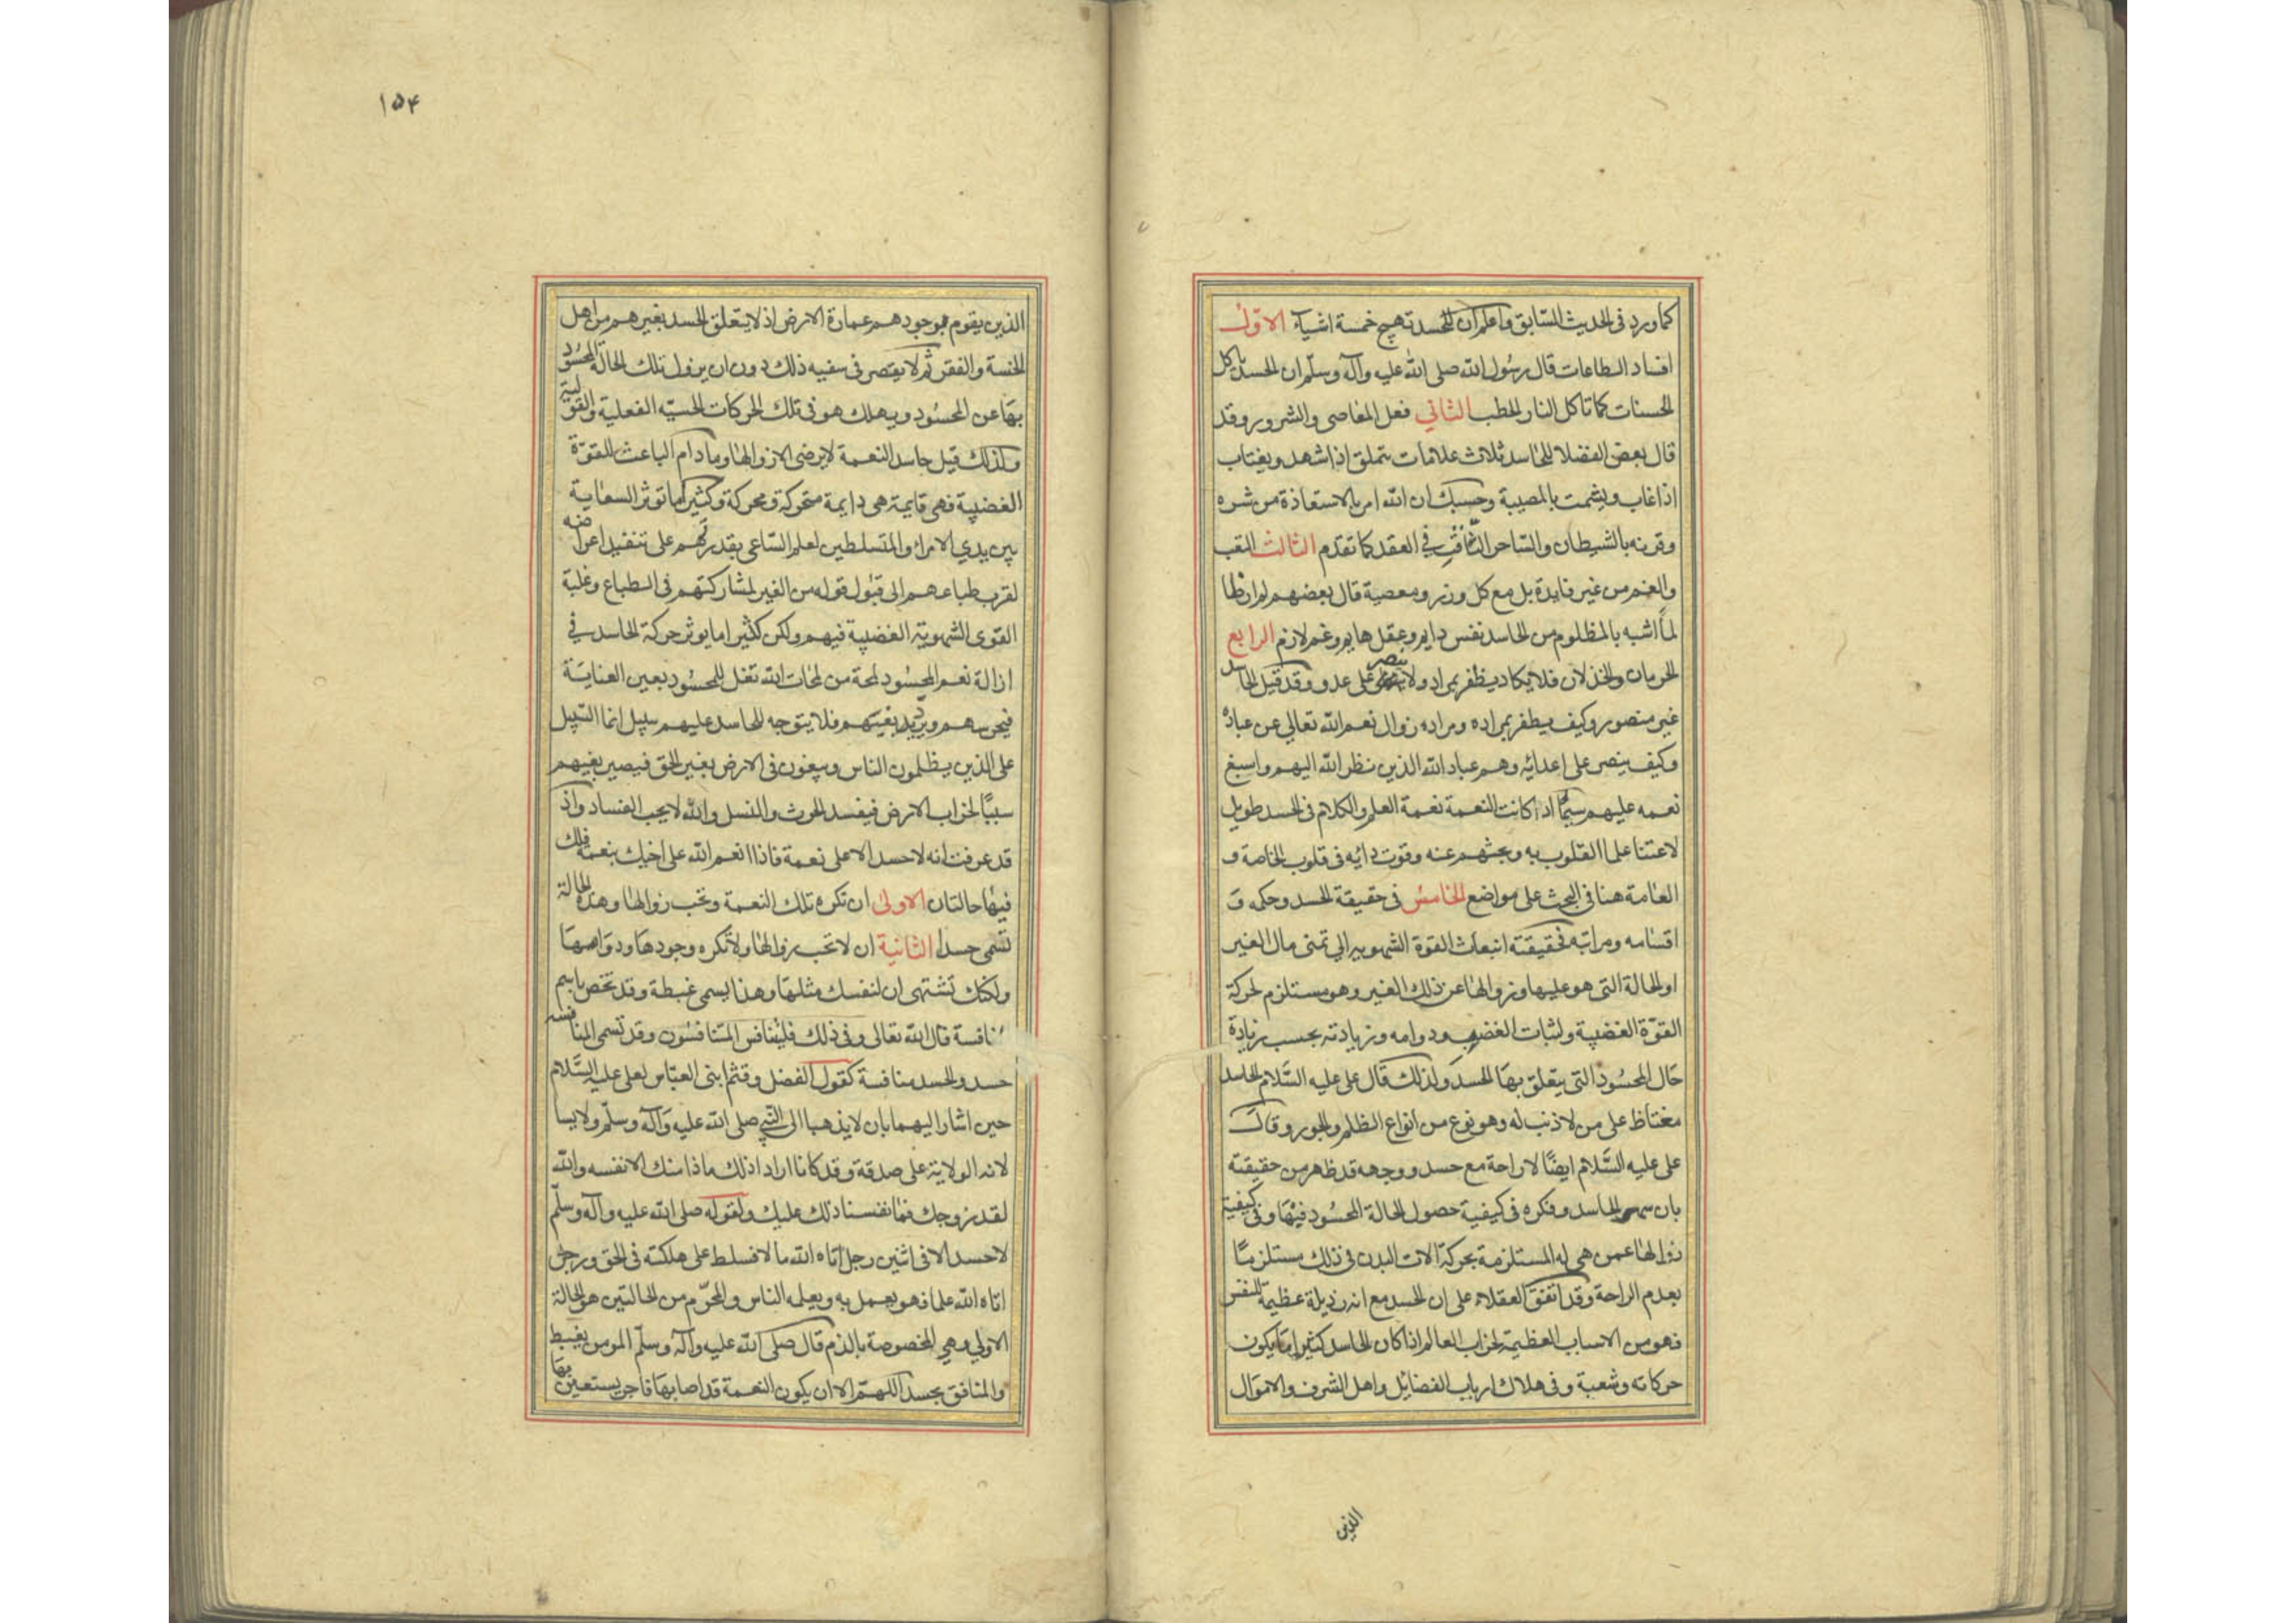 كما ورد فى الحديث السّابق واعلم ان للحسد تهيج خمسة اشياء الاوّل
افساد الطاعات قال رسُول الله صلى الله عليه وآله وسلّم ان الحسد ياكل
الحسنات كما تاكل النار الحطب الثانى فعل المعاصى والشرور وقد
قال بعض الفضلا للحاسد ثلاث علامات يتملق اذا شهد ويغتاب
اذا غاب ويشمت بالمصيبة وحسبك ان الله امر بالاستعاذة من شره
وقرنه بالشيطان والسّاحر النّافث فى العقد كما تقدم الثالث التعب
والغم من غير فايدة بل مع كل وزر ومعصية قال بعضهم لم ار ظا
لماً اشبه بالمظلوم من الحاسد نفس دايم وعقل هايم وغم لازم الرابع
الحرمان والخذلان فلا يكاد يظفر بمراد ولا ينصر على عدو وقد قيل الحاسد
غير منصور وكيف يظفر بمراده ومراده زوال نعم الله تعالى عن عباده
وكيف ينصر على اعدائه وهم عباد الله الذين نظر الله اليهم واسبغ
نعمه عليهم سيّما اذا كانت النعمة نعمة العلم والكلام فى الحسد طويل
لاعتنا علما القلوب به وبحثهم عنه وقوت دائه فى قلوب الخاصة و
العامة هنا فى البحث على مواضع الخامس فى حقيقة الحسد وحكمه و
اقسامه ومراتبه فحقيقته انبعاث القوة الشهويه الى تمنى مال الغير
او الحالة التى هو عليها وزوالها عن ذلك الغير وهو مستلزم لحركة
القوّة الغضبية ولثبات الغضب ودوامه وزيادته بحسب زيادة
حَال المحسُود التى يتعلق بهَا الحسَد ولذلك قال على عليه السَّلام الحاسد
مغتاظ على من لا ذنب له وهو نوع من انواع الظلم والجور وقال
على عليه السَّلام ايضًا لا راحة مع حسد ووجهه قد ظهر من حقيقته
بان الحاسد وفكره فى كيفية حصول الحالة المحسُود فيهَا وفى كيفية
زوالها عمن هى له المستلزمة بحركة الات البدن فى ذلك مستلزمًا
بعدم الراحة وقد اتفق العقلاء على ان الحسد مع انه رذيلة عظيمة للنفس
فهو من الاسباب العظيمة لخراب العالم اذا كان الحاسد كثيرا ما يكون
حركاته وشعبة وفى هلاك ارباب الفضايل واهل الشرف والاموال
الذين
١٥٤
الذين يقوم بوجودهم عمارة الارض اذ لا يتعلق الحسد بغيرهم من اهل
الخسة والفقر ثم لا يقتصر فى سغيه ذلك دون ان يزول تلك الحالة المحسُود
بهَا عن المحسُود ويهلك هو فى تلك الحركات الحسيّه الفعلية والقولية
ولذلك قيل حاسد النعمة لا يرضى الا زوالها وما دام الباعث للقوّة
الغضبية فهى قايمة هى دايمة متحركة ومحركة وكثيرا ما توثر السعاية
بين يدي الامراء والمتسلطين لعلم السّاعى بقدرتهم على تنفيد اعراضه
لقرب طباعهم الى قبُول قوله من الغير لمشاركتهم فى الطباع وغلبة
القوى الشهوية الغضبية فيهم ولكن كثيرا ما يوثر حركة الحاسد فى
ازالة نعم المحسُود لمحة من لمحات الله تعالى للمحسُود بعين العناية
فيحرسهم ويزيد بغيتهم فلا يتوجه للحاسد عليهم سبيل انما السّبيل
على الذين يظلمون الناس ويبغون فى الارض بغير الحق فيصير بغيهم
سببًا لخراب الارض فيفسد الحرث والنسل والله لا يحب الفساد واذ
قد عرفت انه لا حسد الا على نعمة فاذا انعم الله على اخيك بنعمة فلك
فيها حالتان الاولى ان تكره تلك النعمة وتحب زوالها وهذه الحالة
تسَمى حسدًا الثانية ان لا تحب زوالها ولا تكره وجودهَا ودوامهَا
ولكنك تشتهى ان لنفسك مثلهَا وهذا يسمى غبطة وقد تخص باسم
نافسة قال الله تعالى وفى ذلك فليتنافس المتنافسُون وقد تسمى المنافسه
حسد والحسد منافسة كقول الفضل وقثم ابنى العبّاس لعلى عليه السَّلام
حين اشار اليهما بان لا يذهبا الى النّبى صلى الله عليه وآله وسلّم ولا يسا
لانه الولاية على صدقة وقد كانا ارادا ذلك ماذا منك الا نفسه والله
لقد زوجك فما نفسنا ذلك عليك ولقوله صلى الله عليه وآله وسلّم
لا حسد الا فى اثنين رجل اتاه الله مالا فسلط على هلكته فى الحق ورجل
اتاه الله علما فهو يعمل به ويعلمه الناس والمحرّم من الحالتين هو الحالة
الاولى وهى المخصوصة بالذم قال صلى الله عليه وآله وسلّم المومن يغبط
والمنافق يحسد اللهمّ الا ان يكون النعمة قد اصابهَا فاجر يستعين بهَا